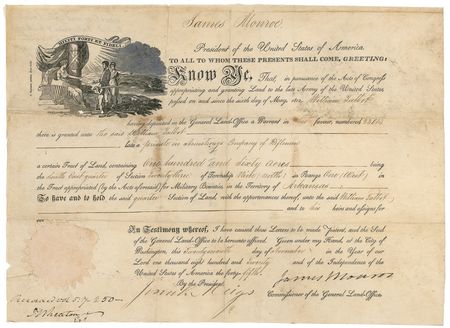 James Monroe,
President of the United States of America
MILITI FORTI ET FIDELI
TO ALL TO WHOM THESE PRESENTS SHALL COME, GREETING:
Know Ye, That, in pursuance of the Acts of Congress
appropriating and granting Land to the late Army of the United States,
passed on and since the sixth day of May, 1812, William Talbot
having deposited in the General Land-Office a Warrant in favor, numbered
there is granted unto the said William Talbot
late a private in Company of Riflemen
a certain Tract of Land, containing One hundred and sixty acres being
the South East quarter of Section twenty three of Township in Range One (West)
in the Tract appropriated (by the Acts aforesaid) for Military Bounties, in the Territory of Arkansas
To have and to hold the said quarter Section of Land, with the appurtenances thereof, unto the said William Talbot
and to his heirs and assigns for
In Testimony whereof, I have caused these Letters to be made Patent, and the Seal
of the General Land-Office to be hereunto affixed. Given under my Hand, at the City of
Washington, this day of November in the Year of our
Lord one thousand eight hundred and twenty and of the Independence of the
United States of America the forty fifth
By the President, James Monroe
Josiah Meigs Commissioner of the General Land-Office.
Recorded Vol. 17 250